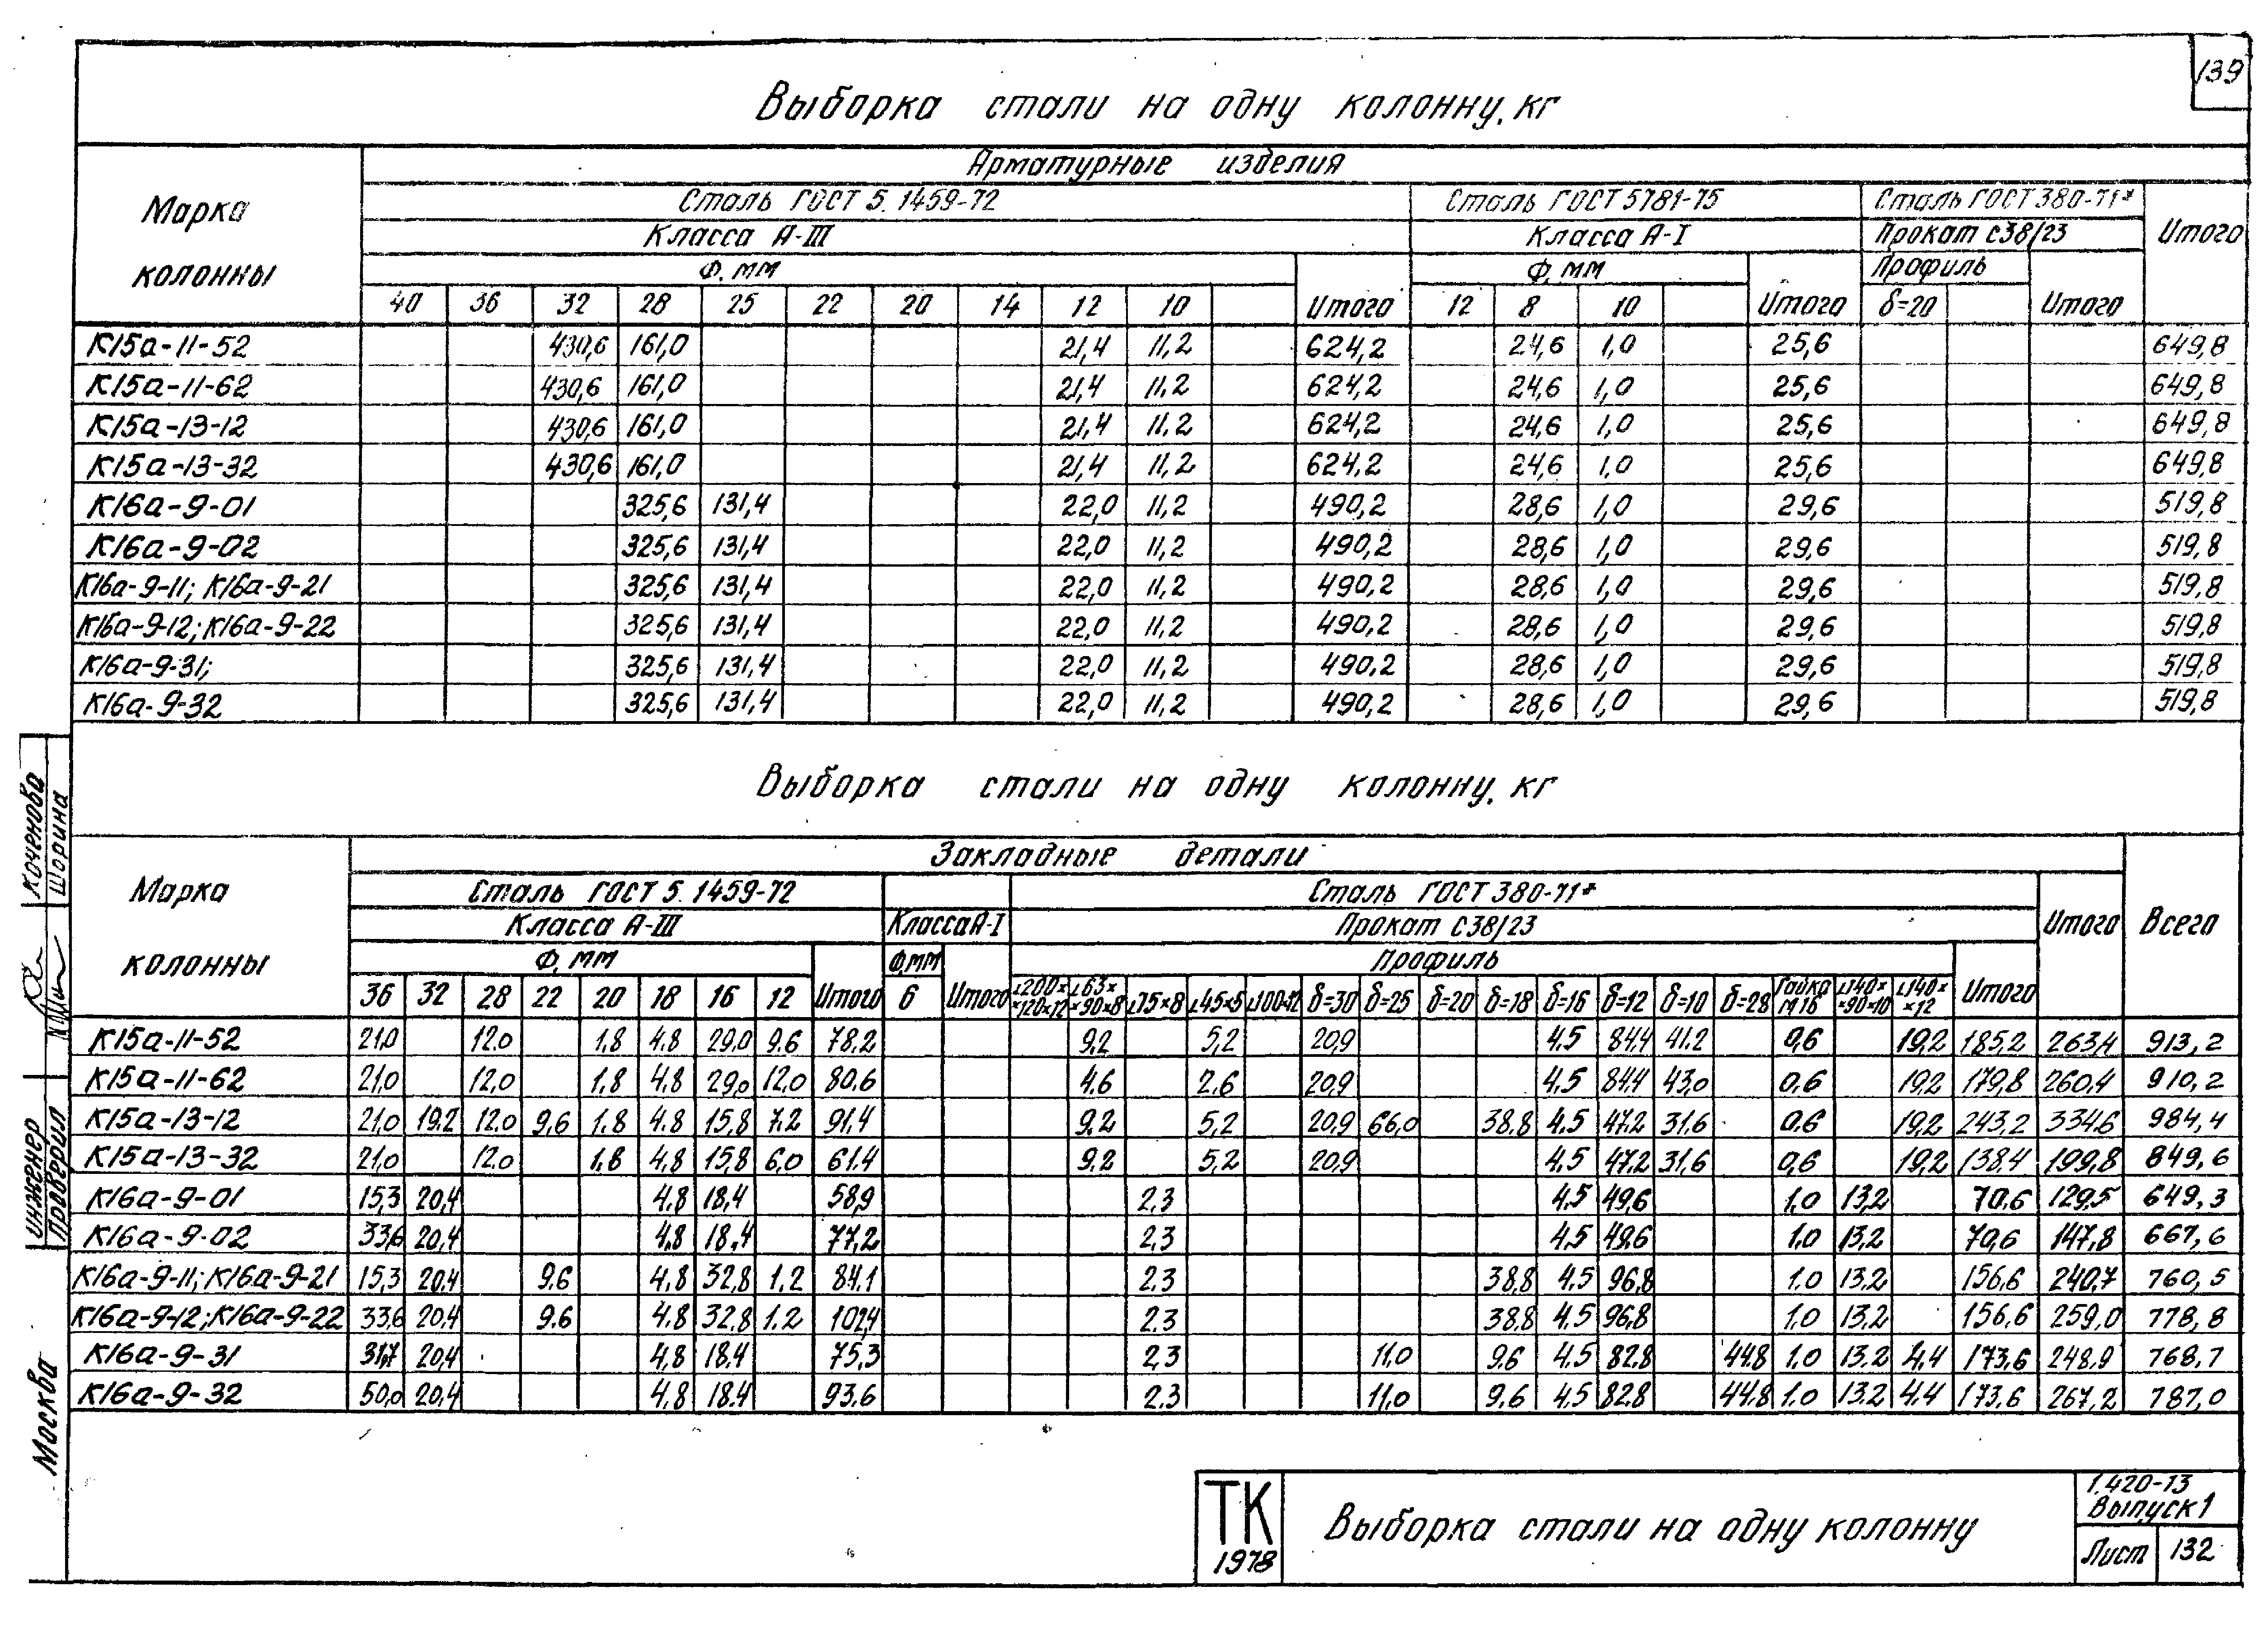 139
Выборка стали на одну колонну, кг
Марка колонны
Арматурные изделия
Сталь ГОСТ 5.1459-72 Сталь ГОСТ 5781-75 Сталь ГОСТ 380-71* Итого
Класса А-III Класса А-I Прокат С38/23
Ф, мм Итого Ф, мм Итого Профиль Итого
40 36 32 28 25 22 20 14 12 10 12 8 10 δ=20
К15а-11-52 430,6 161,0 21,4 11,2 624,2 24,6 1,0 25,6 649,8
К15а-11-62 430,6 161,0 21,4 11,2 624,2 24,6 1,0 25,6 649,8
К15а-13-12 430,6 161,0 21,4 11,2 624,2 24,6 1,0 25,6 649,8
К15а-13-32 430,6 161,0 21,4 11,2 624,2 24,6 1,0 25,6 649,8
К16а-9-01 325,6 131,4 22,0 11,2 490,2 28,6 1,0 29,6 519,8
К16а-9-02 325,6 131,4 22,0 11,2 490,2 28,6 1,0 29,6 519,8
К16а-9-11; К16а-9-21 325,6 131,4 22,0 11,2 490,2 28,6 1,0 29,6 519,8
К16а-9-12; К16а-9-22 325,6 131,4 22,0 11,2 490,2 28,6 1,0 29,6 519,8
К16а-9-31; 325,6 131,4 22,0 11,2 490,2 28,6 1,0 29,6 519,8
К16а-9-32 325,6 131,4 22,0 11,2 490,2 28,6 1,0 29,6 519,8
Выборка стали на одну колонну, кг
Марка колонны
Закладные детали Всего
Сталь ГОСТ 5.1459-72 Сталь ГОСТ 380-71* Итого
Класса А-III Класса А-I Прокат С38/23
Ф, мм Итого Ф, мм Итого Профиль Итого
36 32 28 22 20 18 16 12 6 ∟200××120×12 ∟63××90×8 ∟75×8 ∟45×5 ∟100×12 δ=30 δ=25 δ=20 δ=18 δ=16 δ=12 δ=10 δ=28 Гайка М16 ∟140××90×10 ∟140××12
К15а-11-52 21,0 12,0 1,8 4,8 29,0 9,6 78,2 9,2 5,2 20,9 4,5 84,4 41,2 0,6 19,2 185,2 263,4 913,2
К15а-11-62 21,0 12,0 1,8 4,8 29,0 12,0 80,6 4,6 2,6 20,9 4,5 84,4 43,0 0,6 19,2 179,8 260,4 910,2
К15а-13-12 21,0 19,2 12,0 9,6 1,8 4,8 15,8 7,2 91,4 9,2 5,2 20,9 66,0 38,8 4,5 47,2 31,6 0,6 19,2 243,2 334,6 984,4
К15а-13-32 21,0 12,0 1,8 4,8 15,8 6,0 61,4 9,2 5,2 20,9 4,5 47,2 31,6 0,6 19,2 138,4 199,8 849,6
К16а-9-01 15,3 20,4 4,8 18,4 58,9 2,3 4,5 49,6 1,0 13,2 70,6 129,5 649,3
К16а-9-02 33,6 20,4 4,8 18,4 77,2 2,3 4,5 49,6 1,0 13,2 70,6 147,8 667,6
К16а-9-11; К16а-9-21 15,3 20,4 9,6 4,8 32,8 1,2 84,1 2,3 38,8 4,5 96,8 1,0 13,2 156,6 240,7 760,5
К16а-9-12; К16а-9-22 33,6 20,4 9,6 4,8 32,8 1,2 102,4 2,3 38,8 4,5 96,8 1,0 13,2 156,6 259,0 778,8
К16а-9-31 31,7 20,4 4,8 18,4 75,3 2,3 11,0 9,6 4,5 82,8 44,8 1,0 13,2 4,4 173,6 248,9 768,7
К16а-9-32 50,0 20,4 4,8 18,4 93,6 2,3 11,0 9,6 4,5 82,8 44,8 1,0 13,2 4,4 173,6 267,2 787,0
Коченова
Шорина
инженер
Проверил
Москва
ТК
1978
Выборка стали на одну колонну
1.420-13
Выпуск 1
Лист 132